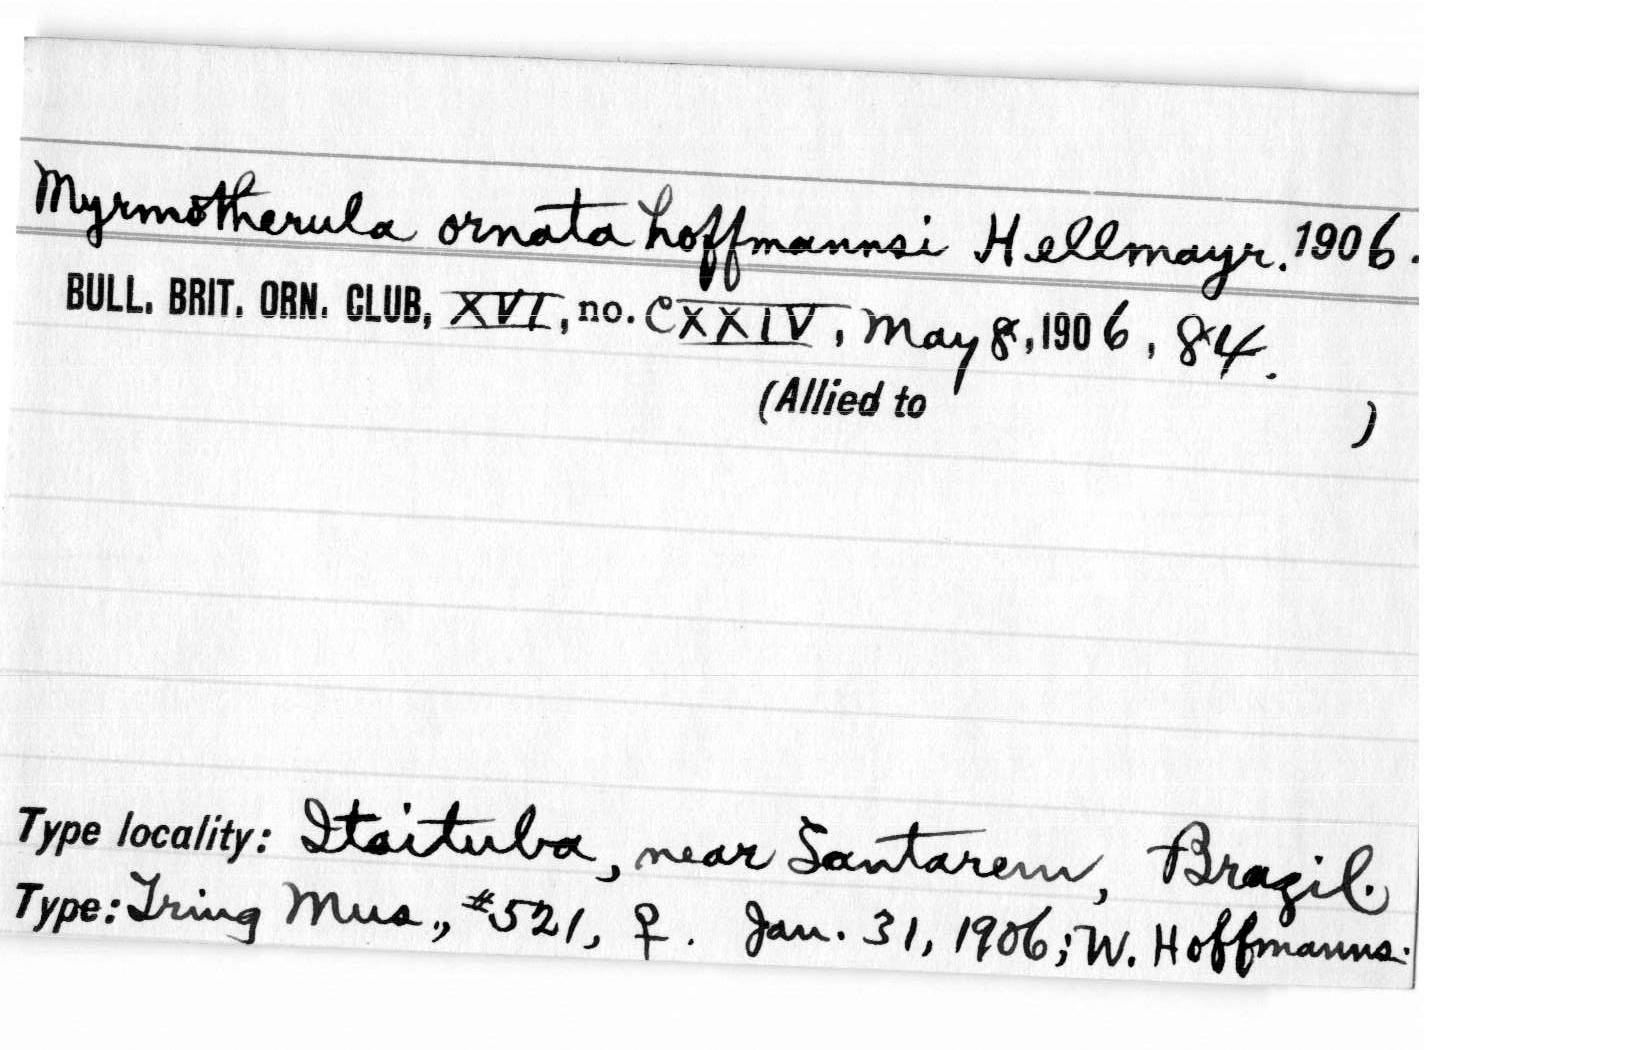 Myrmotherula ornata hoffmannsi Hellmayr. 1906.
BULL. BRIT. ORN. CLUB, XVI, no. CXXIV, May 8, 1906, 84.
(Allied to )
Type locality: Itaituba, near Santarem, Brazil.
Type: Tring Mus., #521, ♀. Jan. 31, 1906; W. Hoffmanns.